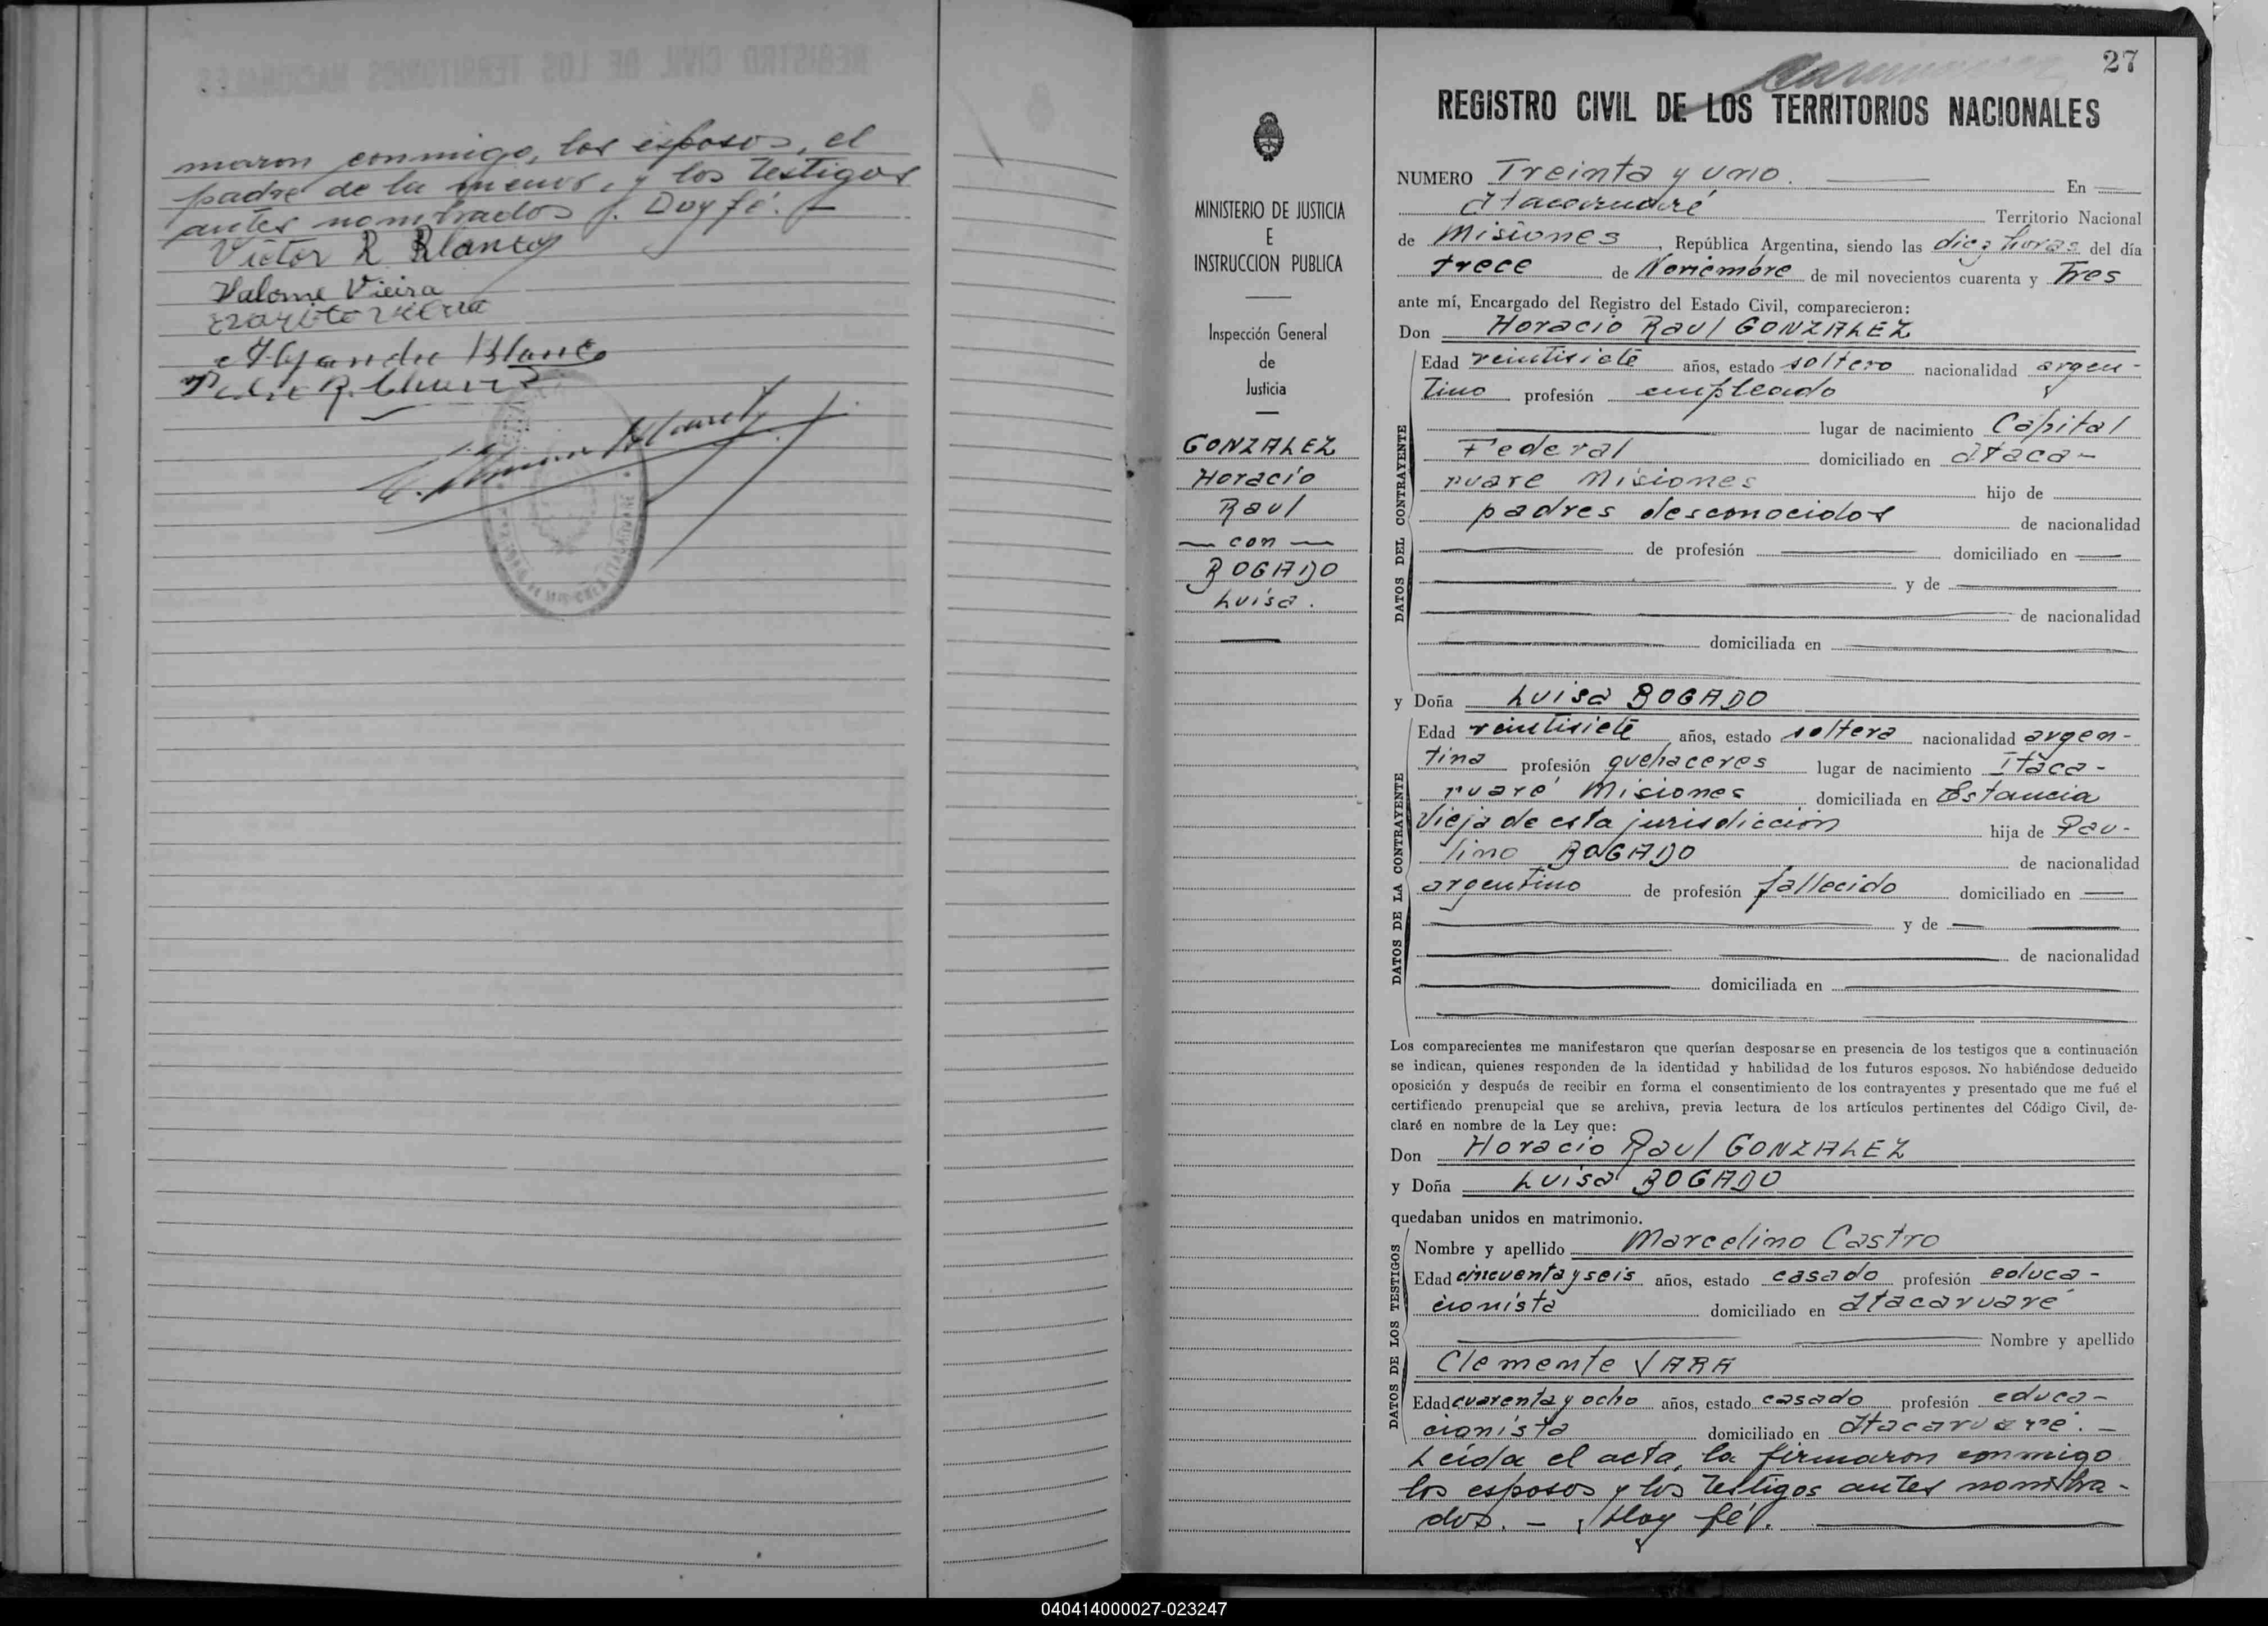 maron conmigo, los esposos, el
padre de la menor, y los testigos
antes nombrados. Doy fé. —
Victor R Blanco
Salome Vieira
Alejandro Blanco
27
REGISTRO CIVIL DE LOS TERRITORIOS NACIONALES
MINISTERIO DE JUSTICIA
E
INSTRUCCION PUBLICA
Inspección General
de
Justicia
GONZALEZ
Horacio
Raul
— con —
BOGADO
Luisa.
NUMERO Treinta y uno. En
Itacaruaré Territorio Nacional
de Misiones, República Argentina, siendo las diez horas del día
trece de Noviembre de mil novecientos cuarenta y Tres
ante mí, Encargado del Registro del Estado Civil, comparecieron:
Don Horacio Raul GONZALEZ
DATOS DEL CONTRAYENTE
Edad veintisiete años, estado soltero nacionalidad argen-
tino profesión empleado
lugar de nacimiento Capital
Federal domiciliado en Itaca-
ruare Misiones hijo de
padres desconocidos de nacionalidad
de profesión domiciliado en
y de
de nacionalidad
domiciliada en
y Doña Luisa BOGADO
DATOS DE LA CONTRAYENTE
Edad veintisiete años, estado soltera nacionalidad argen-
tina profesión quehaceres lugar de nacimiento Itaca-
ruaré Misiones domiciliada en Estancia
Vieja de esta jurisdiccion hija de Pau-
lino BOGADO de nacionalidad
argentino de profesión fallecido domiciliado en
y de
de nacionalidad
domiciliada en
Los comparecientes me manifestaron que querían desposarse en presencia de los testigos que a continuación
se indican, quienes responden de la identidad y habilidad de los futuros esposos. No habiéndose deducido
oposición y después de recibir en forma el consentimiento de los contrayentes y presentado que me fué el
certificado prenupcial que se archiva, previa lectura de los artículos pertinentes del Código Civil, de-
claré en nombre de la Ley que:
Don Horacio Raul GONZALEZ
y Doña Luisa BOGADO
quedaban unidos en matrimonio.
DATOS DE LOS TESTIGOS
Nombre y apellido Marcelino Castro
Edad cincuenta y seis años, estado casado profesión educa-
cionista domiciliado en Itacaruaré
Nombre y apellido
Clemente VARA
Edad cuarenta y ocho años, estado casado profesión educa-
cionista domiciliado en Itacaruaré. —
Leida el acta, la firmaron conmigo
los esposos y los testigos antes nombra-
dos. — Doy fé.
040414000027-023247